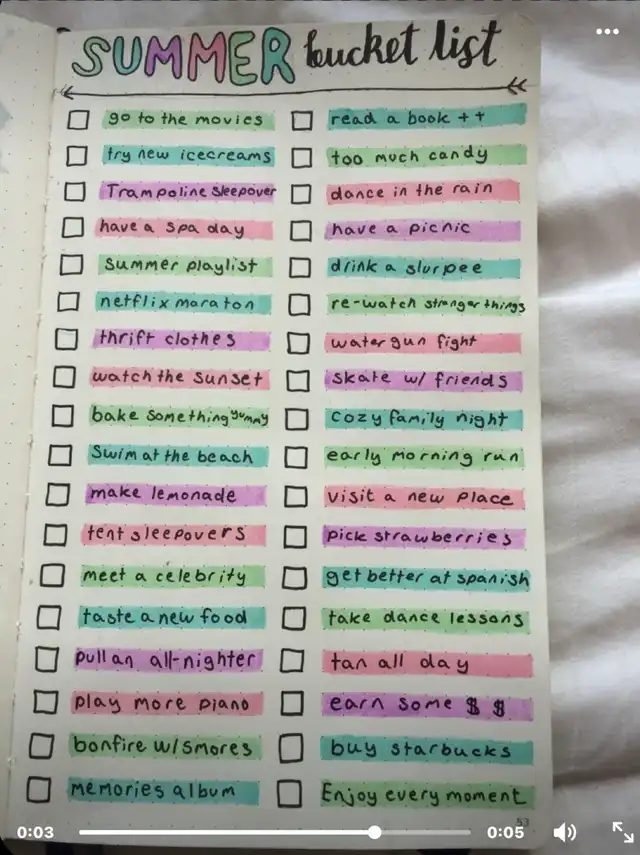 SUMMER bucket list
go to the movies
try new icecreams
Trampoline sleepover
have a spa day
summer playlist
netflix maraton
thrift clothes
watch the sunset
bake something yummy
Swim at the beach
make lemonade
tent sleepovers
meet a celebrity
taste a new food
pull an all-nighter
play more piano
bonfire w/smores
memories album
read a book ++
too much candy
dance in the rain
have a picnic
drink a slurpee
re-watch stranger things
water gun fight
skate w/ friends
cozy family night
early morning run
visit a new place
pick strawberries
get better at spanish
take dance lessons
tan all day
earn some $ $
buy starbucks
Enjoy every moment
53
0:03
0:05